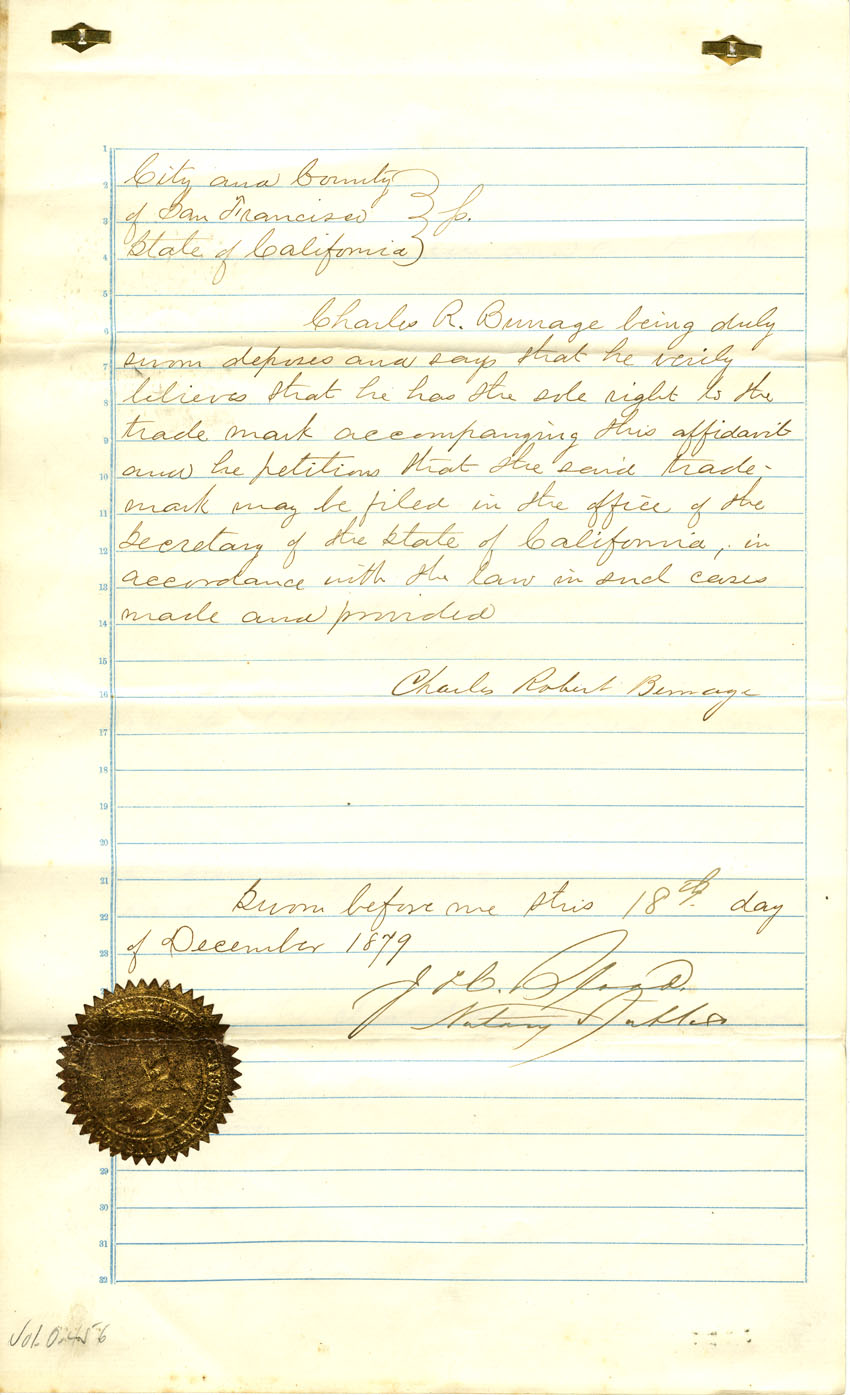 City and County
of San Francisco } ss.
State of California
Charles R. Burrage being duly
sworn deposes and says that he verily
believes that he has the sole right to the
trade mark accompanging this affidavit
and he petitions that the said trade-
mark may be filed in the office of the
Secretary of the State of California, in
accordance with the law in such cases
made and provided
Charles Robert
Sworn before me this 18th day
of December 1879
J H Blood.
Notary Public
1
2
3
4
5
6
7
8
9
10
11
12
13
14
15
16
17
18
19
20
21
22
23
29
30
31
32